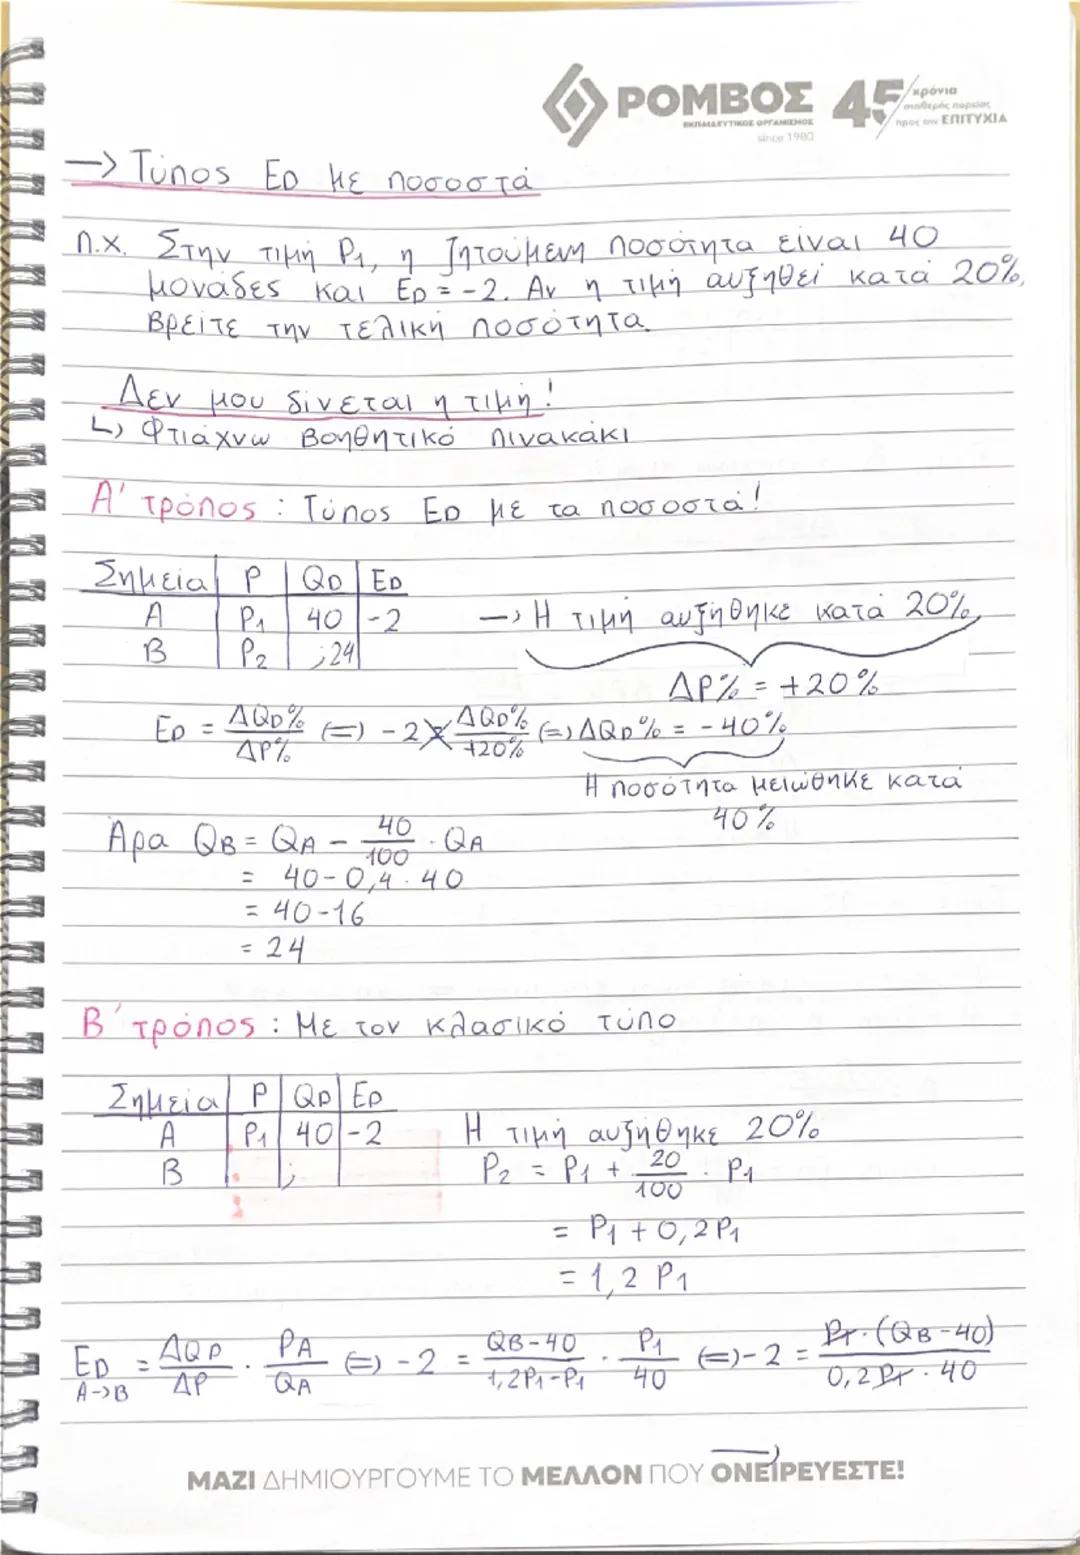 ΡΟΜΒΟΣ
ΕΚΠΑΙΔΕΥΤΙΚΟΣ ΟΡΓΑΝΙΣΜΟΣ
since 1980
45 χρόνια
σταθερής πορείας
προς την ΕΠΙΤΥΧΙΑ
-> Τύπος ED με ποσοστά
π.χ. Στην τιμή P1, η ζητούμενη ποσότητα είναι 40
μονάδες και ED = -2. Αν η τιμή αυξηθεί κατά 20%,
βρείτε την τελική ποσότητα.
Δεν μου δίνεται η τιμή!
↳ Φτιάχνω βοηθητικό πινακάκι
Α' τρόπος : Τύπος ED με τα ποσοστά!
Σημεία | P | QD | ED
Α | P1 | 40 | -2
Β | P2 | ;24
-> Η τιμή αυξήθηκε κατά 20%
ΔP% = +20%
ED = ΔQD% / ΔP% (=) -2 = ΔQD% / +20% (=) ΔQD% = -40%
Η ποσότητα μειώθηκε κατά
40%
Άρα QB = QA - 40/100 . QA
= 40-0,4.40
= 40-16
= 24
Β' τρόπος : Με τον κλασικό τύπο
Σημεία | P | QD | ED
Α | P1 | 40 | -2
Β | | ;
Η τιμή αυξήθηκε 20%
P2 = P1 + 20/100 . P1
= P1 + 0,2P1
= 1,2 P1
ED A->B = ΔQD / ΔP . PA / QA (=) -2 = QB-40 / 1,2P1-P1 . P1 / 40 (=) -2 = P1.(QB-40) / 0,2P1.40
ΜΑΖΙ ΔΗΜΙΟΥΡΓΟΥΜΕ ΤΟ ΜΕΛΛΟΝ ΠΟΥ ΟΝΕΙΡΕΥΕΣΤΕ!